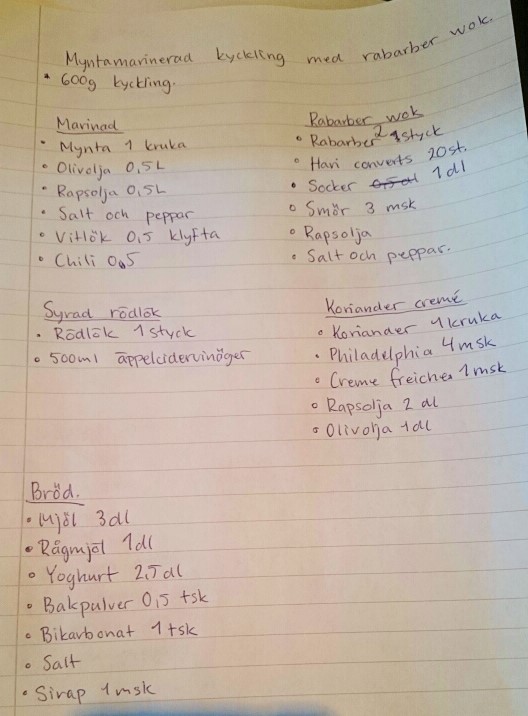 Myntamarinerad kyckling med rabarber wok.
* 600g kyckling.
Marinad
• Mynta 1 kruka
• Olivolja 0,5L
• Rapsolja 0,5L
• Salt och peppar
• Vitlök 0,5 klyfta
• Chili 0,5
Rabarber wok
• Rabarber 2 styck
• Hari converts 20st.
• Socker 0,5dl 1dl
• Smör 3 msk
• Rapsolja
• Salt och peppar.
Syrad rödlök
• Rödlök 1 styck
• 500ml äppelcidervinäger
Koriander cremé
• Koriander 1 kruka
• Philadelphia 4 msk
• Creme freiche 1 msk
• Rapsolja 2 dl
• Olivolja 1dl
Bröd.
• Mjöl 3dl
• Rågmjöl 1dl
• Yoghurt 2,5dl
• Bakpulver 0,5 tsk
• Bikarbonat 1 tsk
• Salt
• Sirap 1 msk